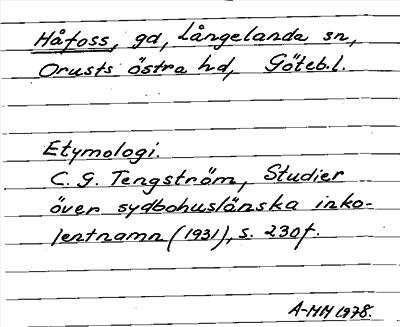 Håfoss, gd, Långelanda sn,
Orusts östra hd, Göteb.l.
Etymologi.
C. G. Tengström, Studier
över sydbohuslänska inko-
lentnamn (1931), s. 230f.
A-MM 1978.